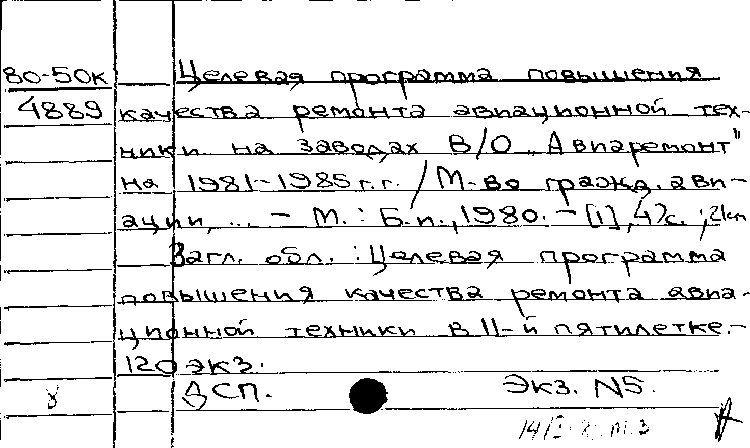 80-50к
4889
Целевая программа повышения
качества ремонта авиационной тех-
ники на заводах В/О „Авиаремонт"
на 1981-1985 г.г. / М-во гражд. ави-
ации, ... - М.: Б.и., 1980. - [1], 47с.;
Загл. обл.: Целевая программа
повышения качества ремонта авиа-
ционной техники в 11-й пятилетке.-
120 экз.
ДСП. Экз. N5.